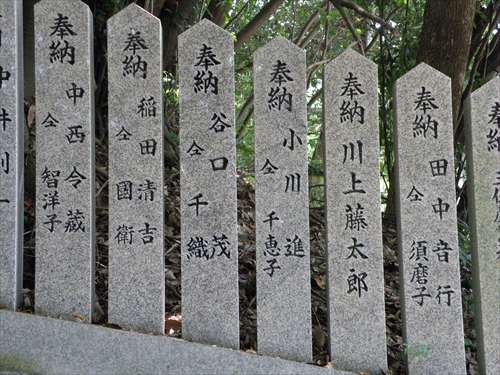 奉納
奉納
田中音行
仝 須磨子
奉納
川上藤太郎
奉納
小川 進
仝 千恵子
奉納
谷口 茂
仝 千織
奉納
稲田清吉
仝 國衛
奉納
中西令藏
仝 智洋子